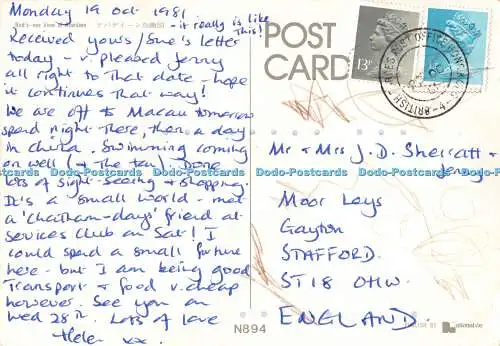 Monday 19 Oct 1981
- it really is like
This!
Received yours/Sue's letter
today - v. pleased Jenny
all right to that date - hope
it continues that way!
We are off to Macau tomorrow
spend night there, then a day
in China. Swimming coming
on well (+ the tan). Done
lots of sight-seeing + shopping.
It's a small world - met
a 'Chatham-days' friend at
Services Club on Sat! I
could spend a small fortune
here - but I am being good
Transport + food v. cheap
however. See you on
Wed 28th. Lots of love
Helen xx.
POST
CARD
13p
BRITISH
Mr + Mrs J.D. Sherratt +
Jenny
Moor Leys
Gayton
STAFFORD.
ST18 0HW.
ENGLAND.
N894
Dodo-Postcards Dodo-Postcards Dodo-Postcards Dodo-Postcards
www.dodo-postcards.com